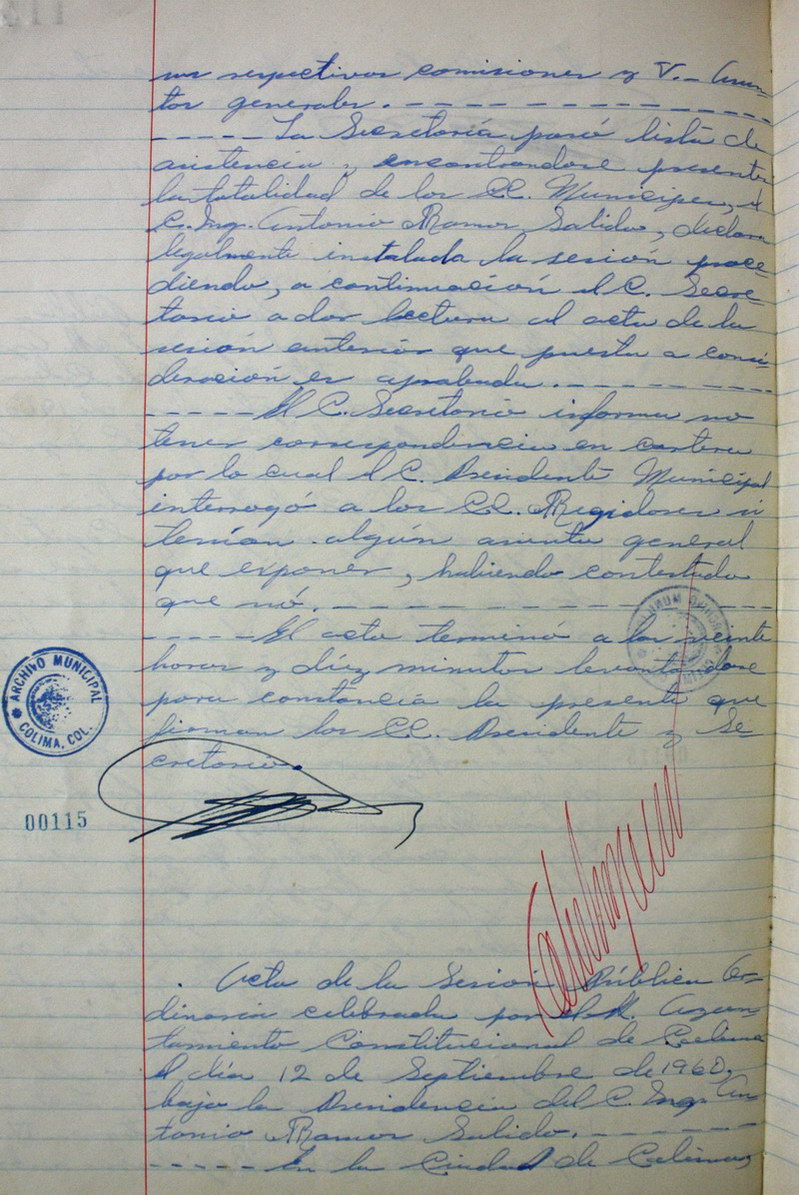 sus respectivas comisiones y V.- Asun-
tos generales. - - - - - - - - - - - -
- - - - - La Secretaría pasó lista de
asistencia y encontrándose presentes
la totalidad de los CC. Munícipes, el
C. Ing. Antonio Ramos Salido, declara
legalmente instalada la sesión proce-
diendo, a continuación el C. Secre-
tario a dar lectura al acta de la
sesión anterior que puesta a consi-
deración es aprobada. - - - - - - - -
- - - - - El C. Secretario informa no
tener correspondencia en cartera
por lo cual el C. Presidente Municipal
interrogó a los CC. Regidores si
tenían algún asunto general
que exponer, habiendo contestado
que nó. - - - - - - - - - - - - - - -
- - - - - El acto terminó a las veinte
horas y diez minutos levantándose
para constancia la presente que
firman los CC. Presidente y Se-
cretario.
ARCHIVO MUNICIPAL
COLIMA, COL.
00115
Acta de la Sesión Pública Or-
dinaria celebrada por el H. Ayun-
tamiento Constitucional de Colima
el día 12 de Septiembre de 1960,
bajo la Presidencia del C. Ing. An-
tonio Ramos Salido. - - - - - - -
- - - - - En la Ciudad de Colima,